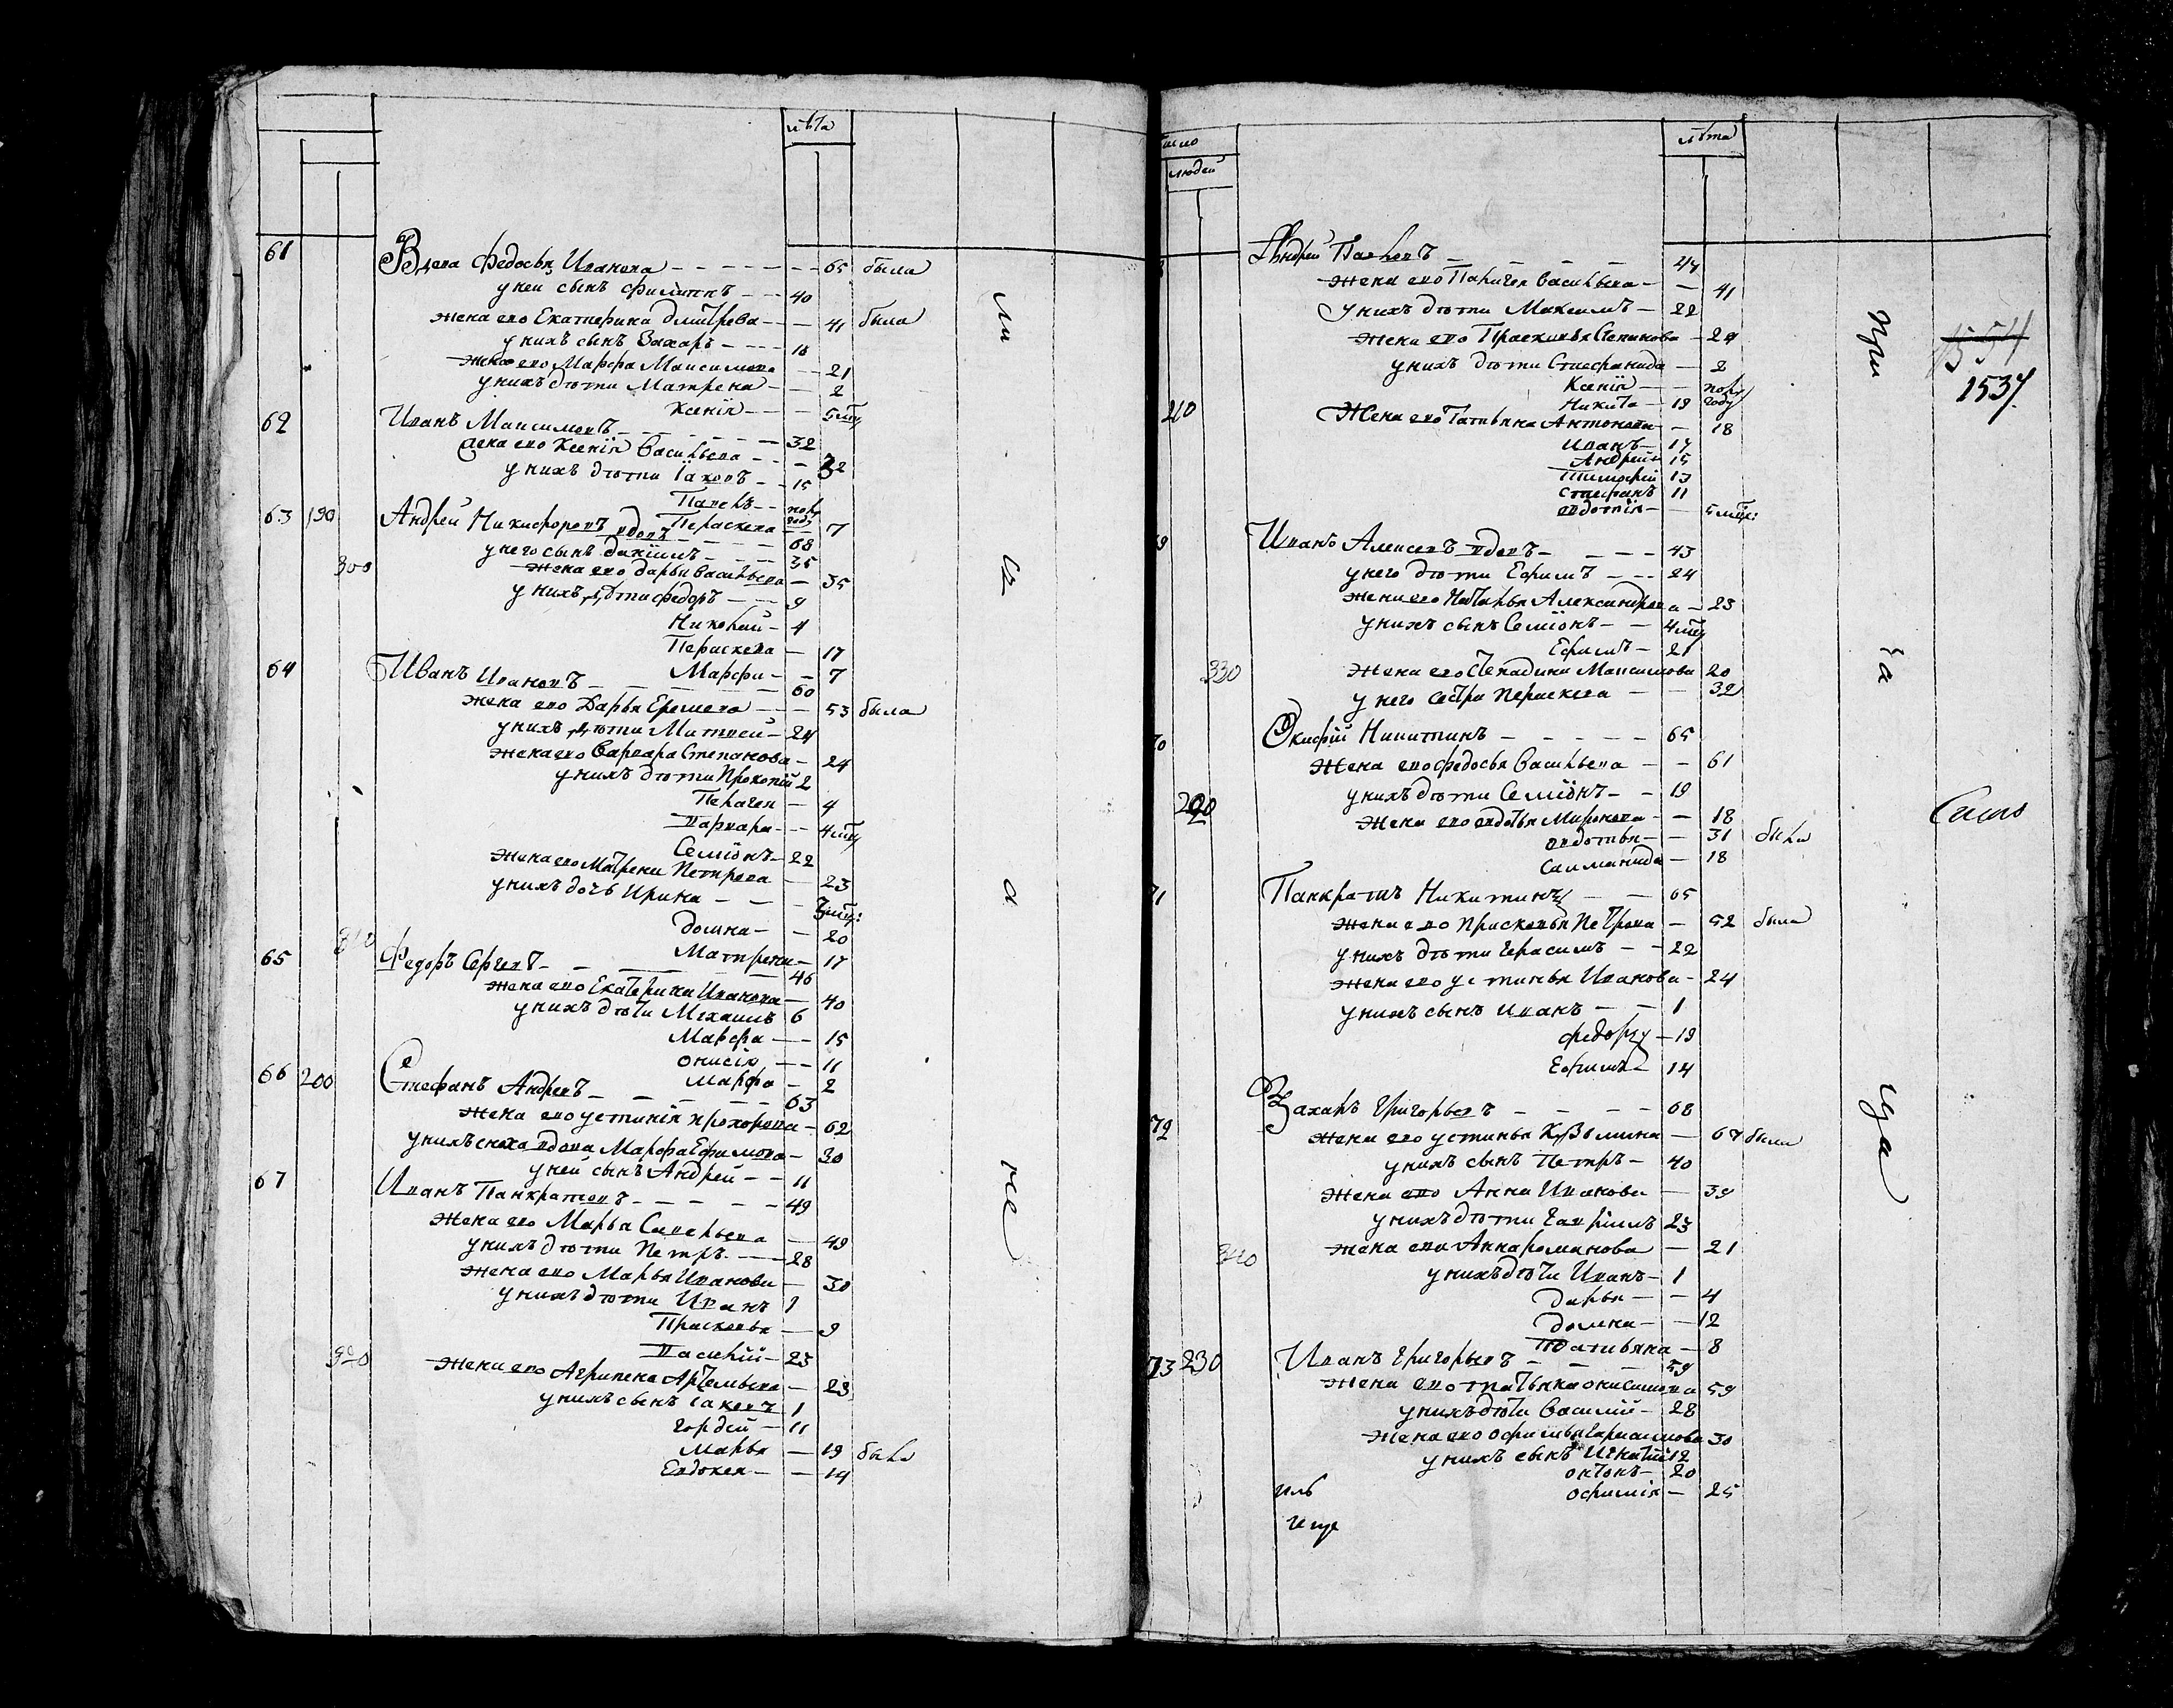 лѣта
61 Вдова Федосья Иванова 65 была
у ней сынъ Филиппъ 40
жена его Екатерина Дмитрева 41 была
у нихъ сынъ Захаръ 18
жена его Марфа Максимова 21
у нихъ дѣти Матрена 2
Ксенія 5 мцы
62 Иванъ Максимовъ 32
жена его Ксенія Васильева 32
у нихъ дѣти Іаковъ 15
Павелъ полу году
Параскева 7
63 190 Андрей Никифоровъ вдовъ 68
у него сынъ Даніилъ 35
300 жена его Дарья Васильева 35
у нихъ дѣти Федоръ 9
Николай 4
Параскева 17
Марфа 7
64 Иванъ Ивановъ 60
жена его Дарья Еремева 53 была
у нихъ дѣти Матвей 24
жена его Варвара Степанова 24
у нихъ дѣти Прокопій 2
Пелагея 4
Варвара 4 мцы
Семіонъ 22
жена его Матрена Петрова 23
у нихъ дочь Ирина 3 мцы
Домна 20
310 Матрена 17
65 Федоръ Сергеевъ 46
жена его Екатерина Иванова 40
у нихъ дѣти Михаилъ 6
Марфа 15
Онисія 11
Марфа 2
66 200 Стефанъ Андревъ 63
жена его Устинія Прохорова 62
у нихъ сноха вдова Марфа Ефимова 30
у ней сынъ Андрей 11
67 Иванъ Панкратовъ 49
жена его Марья Савельева 49
у нихъ дѣти Петръ 28
жена его Марья Иванова 30
у нихъ дѣти Иванъ 1
Прасковья 9
320 Василій 23
жена его Агрипена Артемьева 23
у нихъ сынъ Іаковъ 1
Гордей 11
Марья 19 была
Евдокея 14
ли
са
а
не
число
людей
лѣта
Андрей Павловъ 44
жена его Палагея Васильева 41
у нихъ дѣти Максимъ 22
жена его Прасковья Степанова 24
у нихъ дѣти Стефанида 2
Ксенія полу году
210 Никита 19
Жена его Татьяна Антонова 18
Иванъ 17
Андрей 15
Тимофей 13
Стефанъ 11
Овдотія 5 мцы
69 Иванъ Алексевъ вдовъ 43
у него дѣти Ефимъ 24
жена его Наталья Александрова 23
у нихъ сынъ Семіонъ 4 мцы
Ефимъ 21
330 жена его Генадина Максимова 20
у него сестра Параскева 32
70 Окифій Никитинъ 65
Жена его Федосья Васильева 61
у нихъ дѣти Семіонъ 19
220 жена его Овдотья Миронова 18
Овдотья 31 была
Саиманида 18
71 Панкратъ Никитинъ 65
жена его Прасковья Петрова 52 была
у нихъ дѣти Герасимъ 22
жена его Устинья Иванова 24
у нихъ сынъ Иванъ 1
Федоръ 19
Ефимъ 14
72 Захаръ Григорьевъ 68
жена его Устинья Кузьмина 67 была
у нихъ сынъ Петръ 40
жена его Анна Иванова 39
у нихъ дѣти Гавріилъ 23
340 жена его Анна Романова 21
у нихъ дѣти Иванъ 1
Дарья 4
Домна 12
Татьяна 8
73 230 Иванъ Григорьевъ 59
жена его Татьяна Онисимова 59
у нихъ дѣти Василій 28
жена его Офимья Герасимова 30
у нихъ сынъ Игнатій 12
Онтонъ 20
Офимія 25
при
ча
ща
1537.
Село